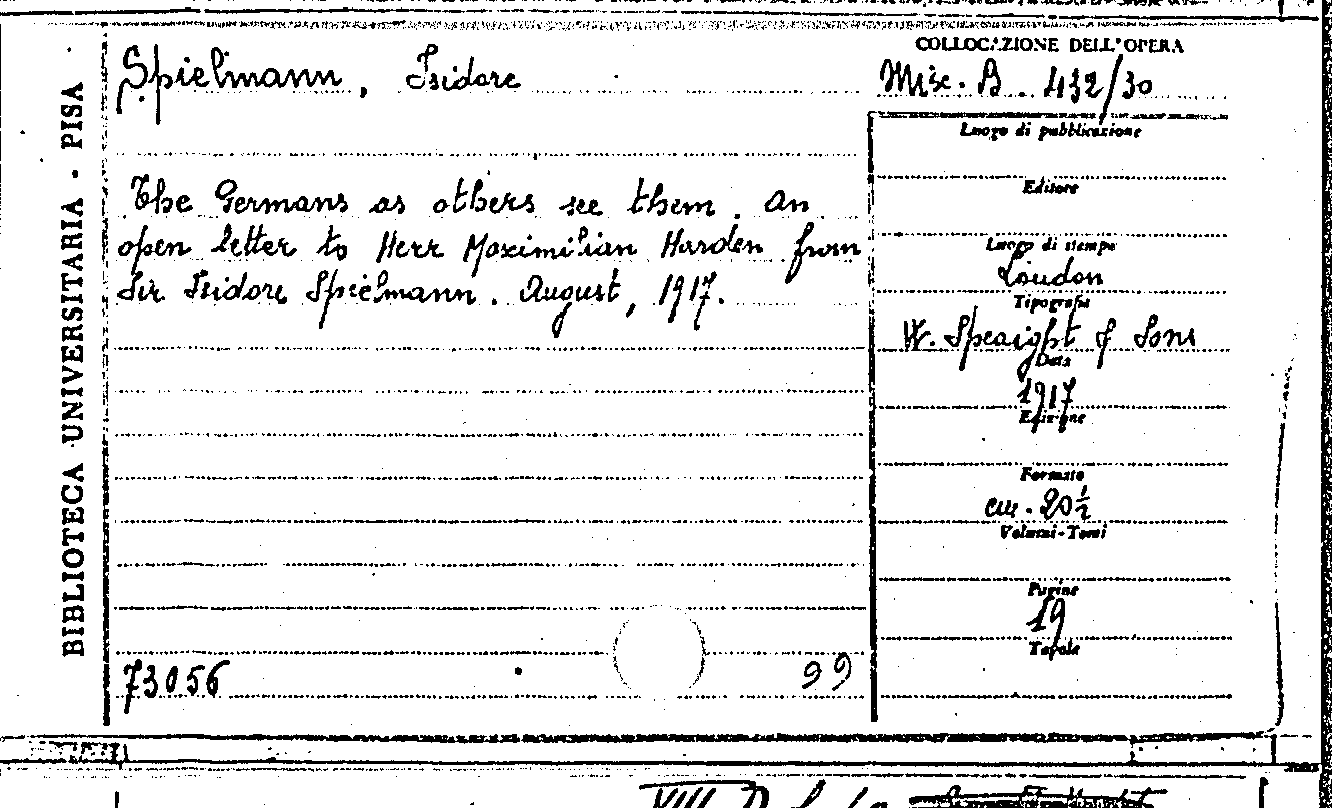 BIBLIOTECA UNIVERSITARIA - PISA
Spielmann, Isidore
The Germans as others see them. An
open letter to Herr Maximilian Harden from
Sir Isidore Spielmann. August, 1917.
73056
99
COLLOCAZIONE DELL'OPERA
Misc. B. 432/30
Luogo di pubblicazione
Editore
Luogo di stampa
London
Tipografia
W. Speaight & Sons
Data
1917
Edizione
Formato
cm. 20½
Volumi-Tomi
Pagine
19
Tavole
VIII